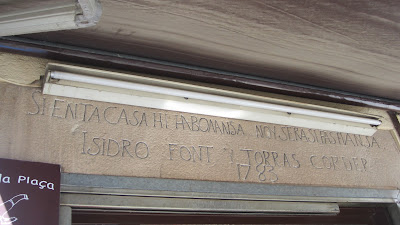 SI ENTA CASA HI HABONANSA NO Y SERA SI HES MATANSA
ISIDRO FONT Y TORRAS CORDER
1783
la Plaça